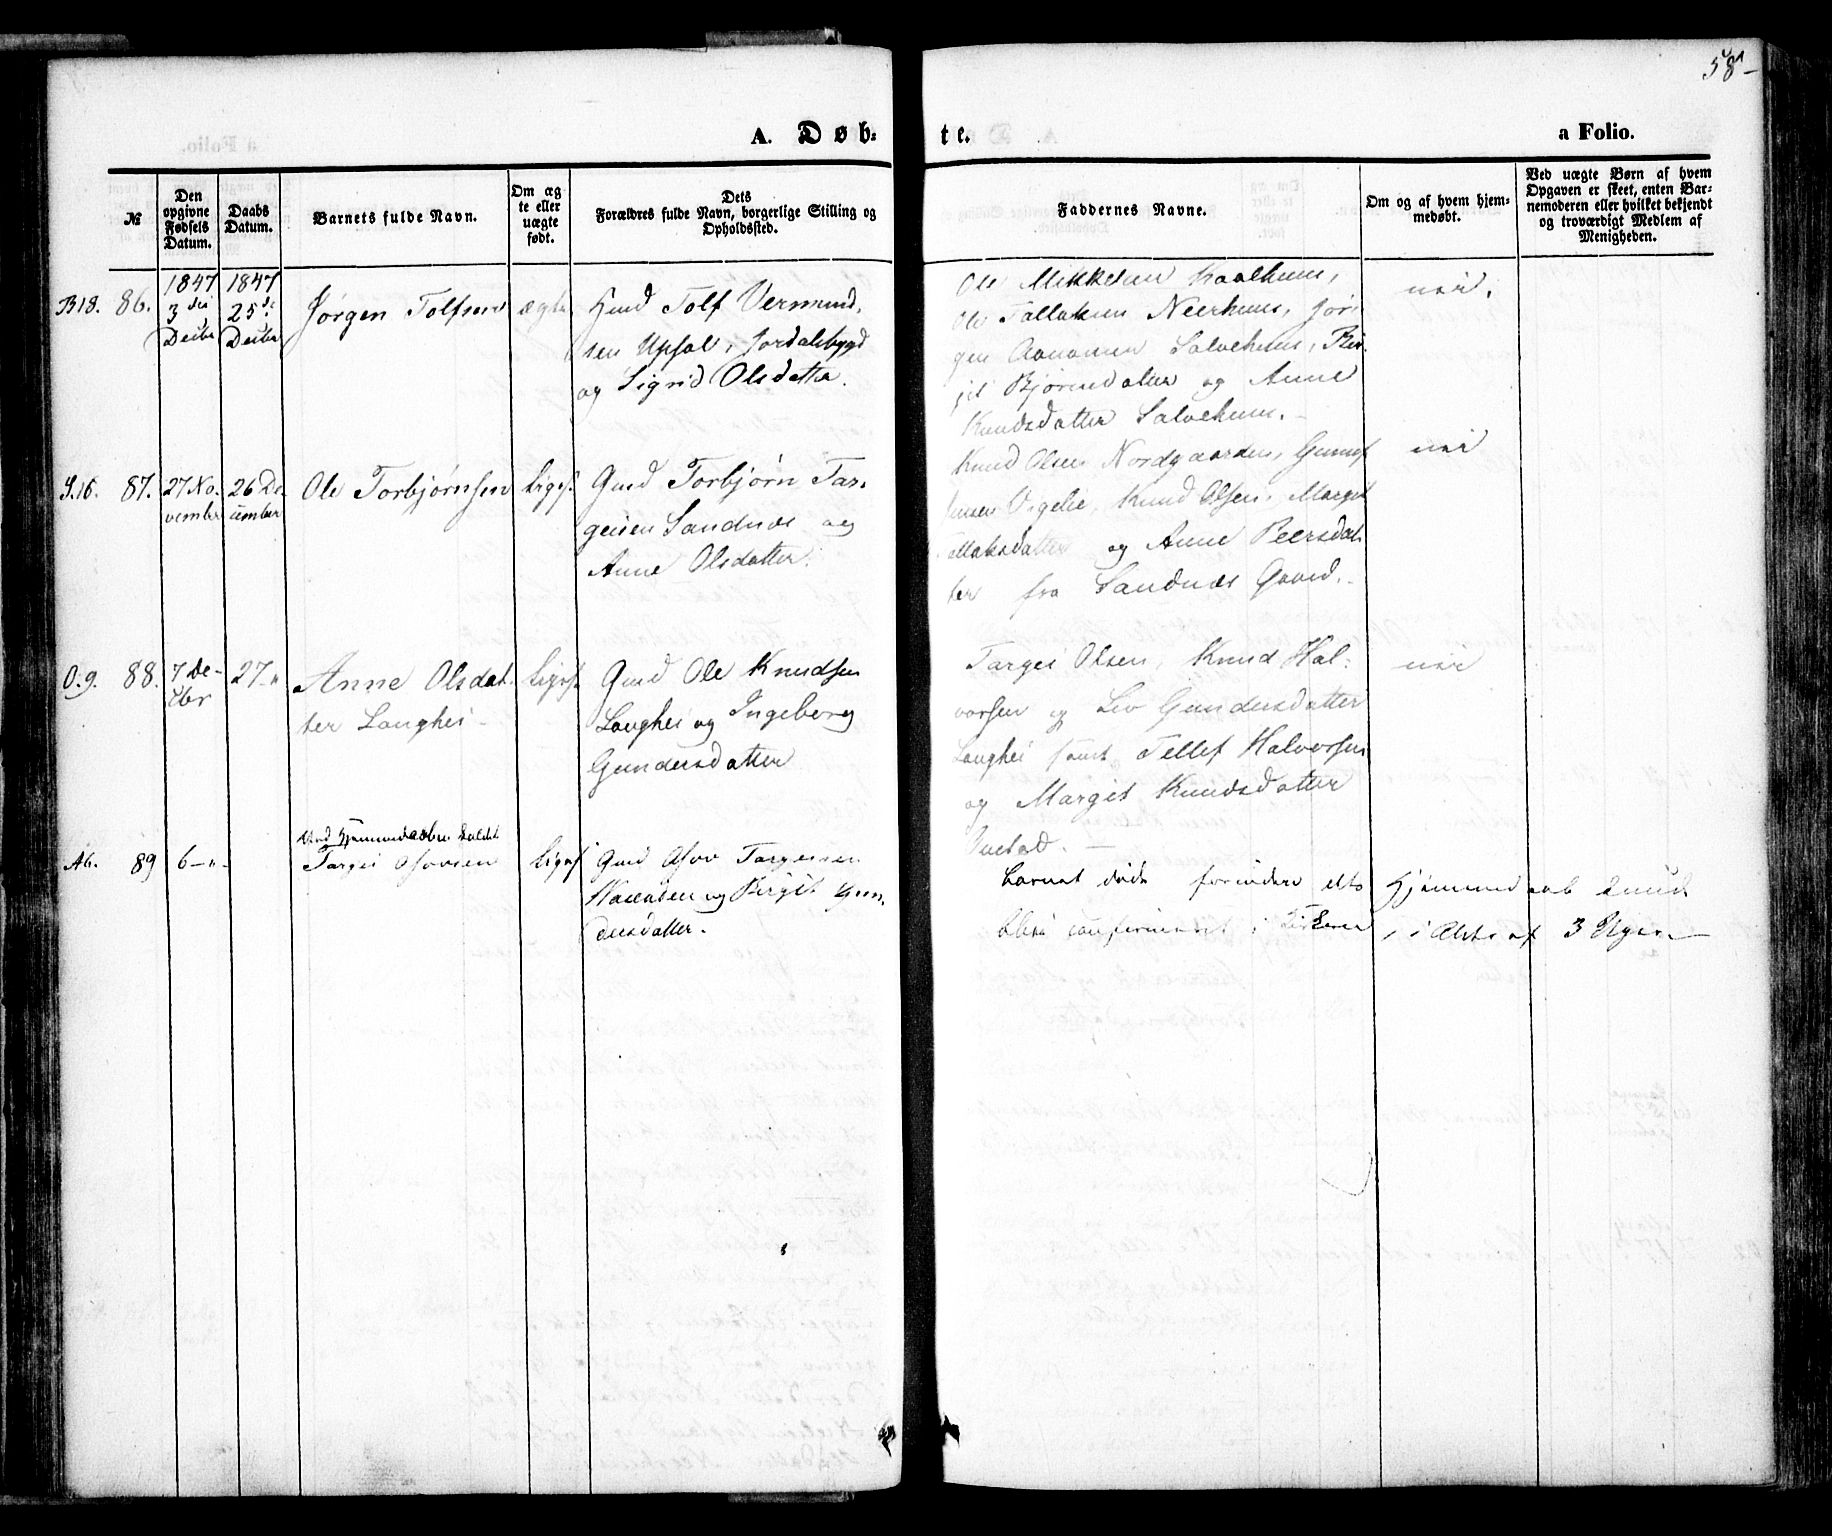 58-
A. Døb-
te.
a Folio.
№
Den
opgivne
Fødsels
Datum.
Daabs
Datum.
Barnets fulde Navn.
Om æg
te eller
uægte
født.
Dets
Forældres fulde Navn, borgerlige Stilling og
Opholdssted.
Faddernes Navne.
Om og af hvem hjem-
medøbt.
Ved uægte Børn af hvem
Opgaven er skeet, enten Bar-
nemoderen eller hvilket bekjendt
og troværdigt Medlem af
Menigheden.
B18. 86.
1847
3die
Decbr
1847
25de
Decbr
Jørgen Tolfsen
ægte
Gmd Tolf Vermund.
sen Upsal, Jordalsbygd
og Sigrid Olsdatter.
Ole Mikkelsen Kaalhuus,
Ole Tallaksen Neerhuus, Jør-
gen Aanonsen Salvehuus, Bir-
git Bjørnsdatter og Anne
Knudsdatter Salvehuus.
nei.
S.16. 87.
27 No-
vember
26 De-
cember
Ole Torbjørnsen
Liges.
Gmd Torbjørn Tar-
geisen Sandnæs og
Anne Olsdatter.
Knud Olsen Nordgaarden, Gunuf
Knud Olsen, Margit
og Anne Peersdat-
ter fra Sandnæs Gaard.
nei
O.9. 88.
7 De-
cbr
27 -"
Anne Olsdat-
ter Langhei -
Ligs.
Gmd Ole Knudsen
Langhei og Ingeborg
Gundersdatter
Targei Olsen, Knud Hal-
vorsen og Liv Gundersdatter
Langhei samt Tellef Halvorsen
og Margit Knudsdatter
nei
A6. 89
6-"-
Ved Hjemmedaaben kaldet
Targei Asovsen
Ligs.
Gmd Asov Targeisen
og Birgit Gun-
dersdatter.
Barnet døde forinden dets Hjemmedaab kunde
blive confirmeret i Kirken, i Alder af 3 Uger.